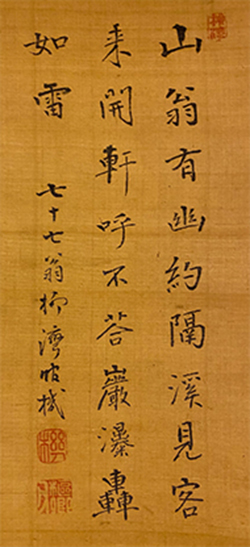 山翁有幽約隔溪見客
来開軒呼不荅巖瀑轟
如雷
七十七翁柳灣